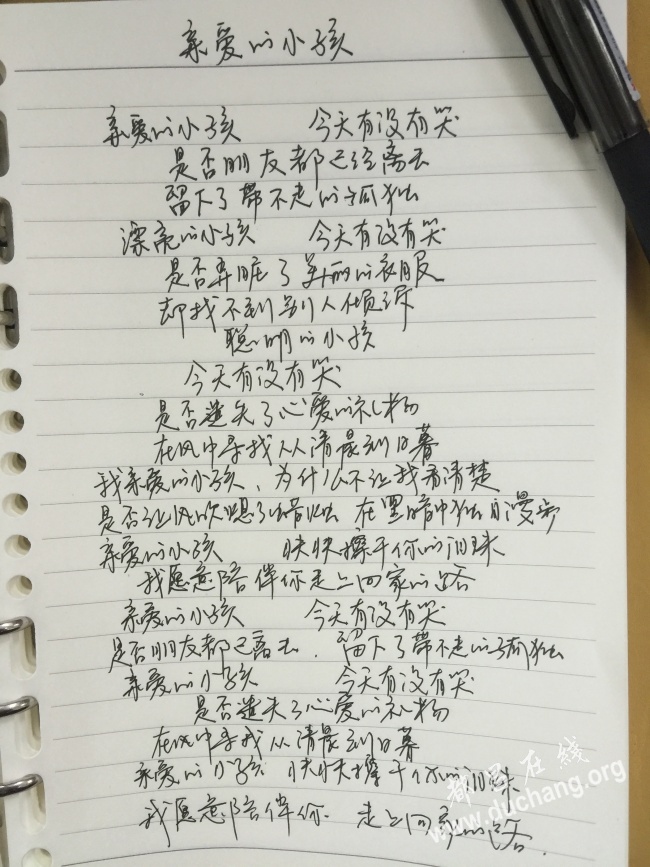 亲爱的小孩
亲爱的小孩 今天有没有哭
是否朋友都已经离去
留下了带不走的孤独
漂亮的小孩 今天有没有哭
是否弄脏了美丽的衣服
却找不到别人倾诉
聪明的小孩
今天有没有哭
是否遗失了心爱的礼物
在风中寻找从清晨到日暮
我亲爱的小孩、为什么不让我看清楚
是否让风吹熄了蜡烛 在黑暗中独自漫步
亲爱的小孩 快快擦干你的泪珠
我愿意陪伴你走上回家的路
亲爱的小孩 今天有没有哭
是否朋友都已离去、留下了带不走的孤独
亲爱的小孩 今天有没有哭
是否遗失了心爱的礼物
在风中寻找从清晨到日暮
亲爱的小孩 快快擦干你的泪珠
我愿意陪伴你 走上回家的路
都昌在线
www.duchang.org